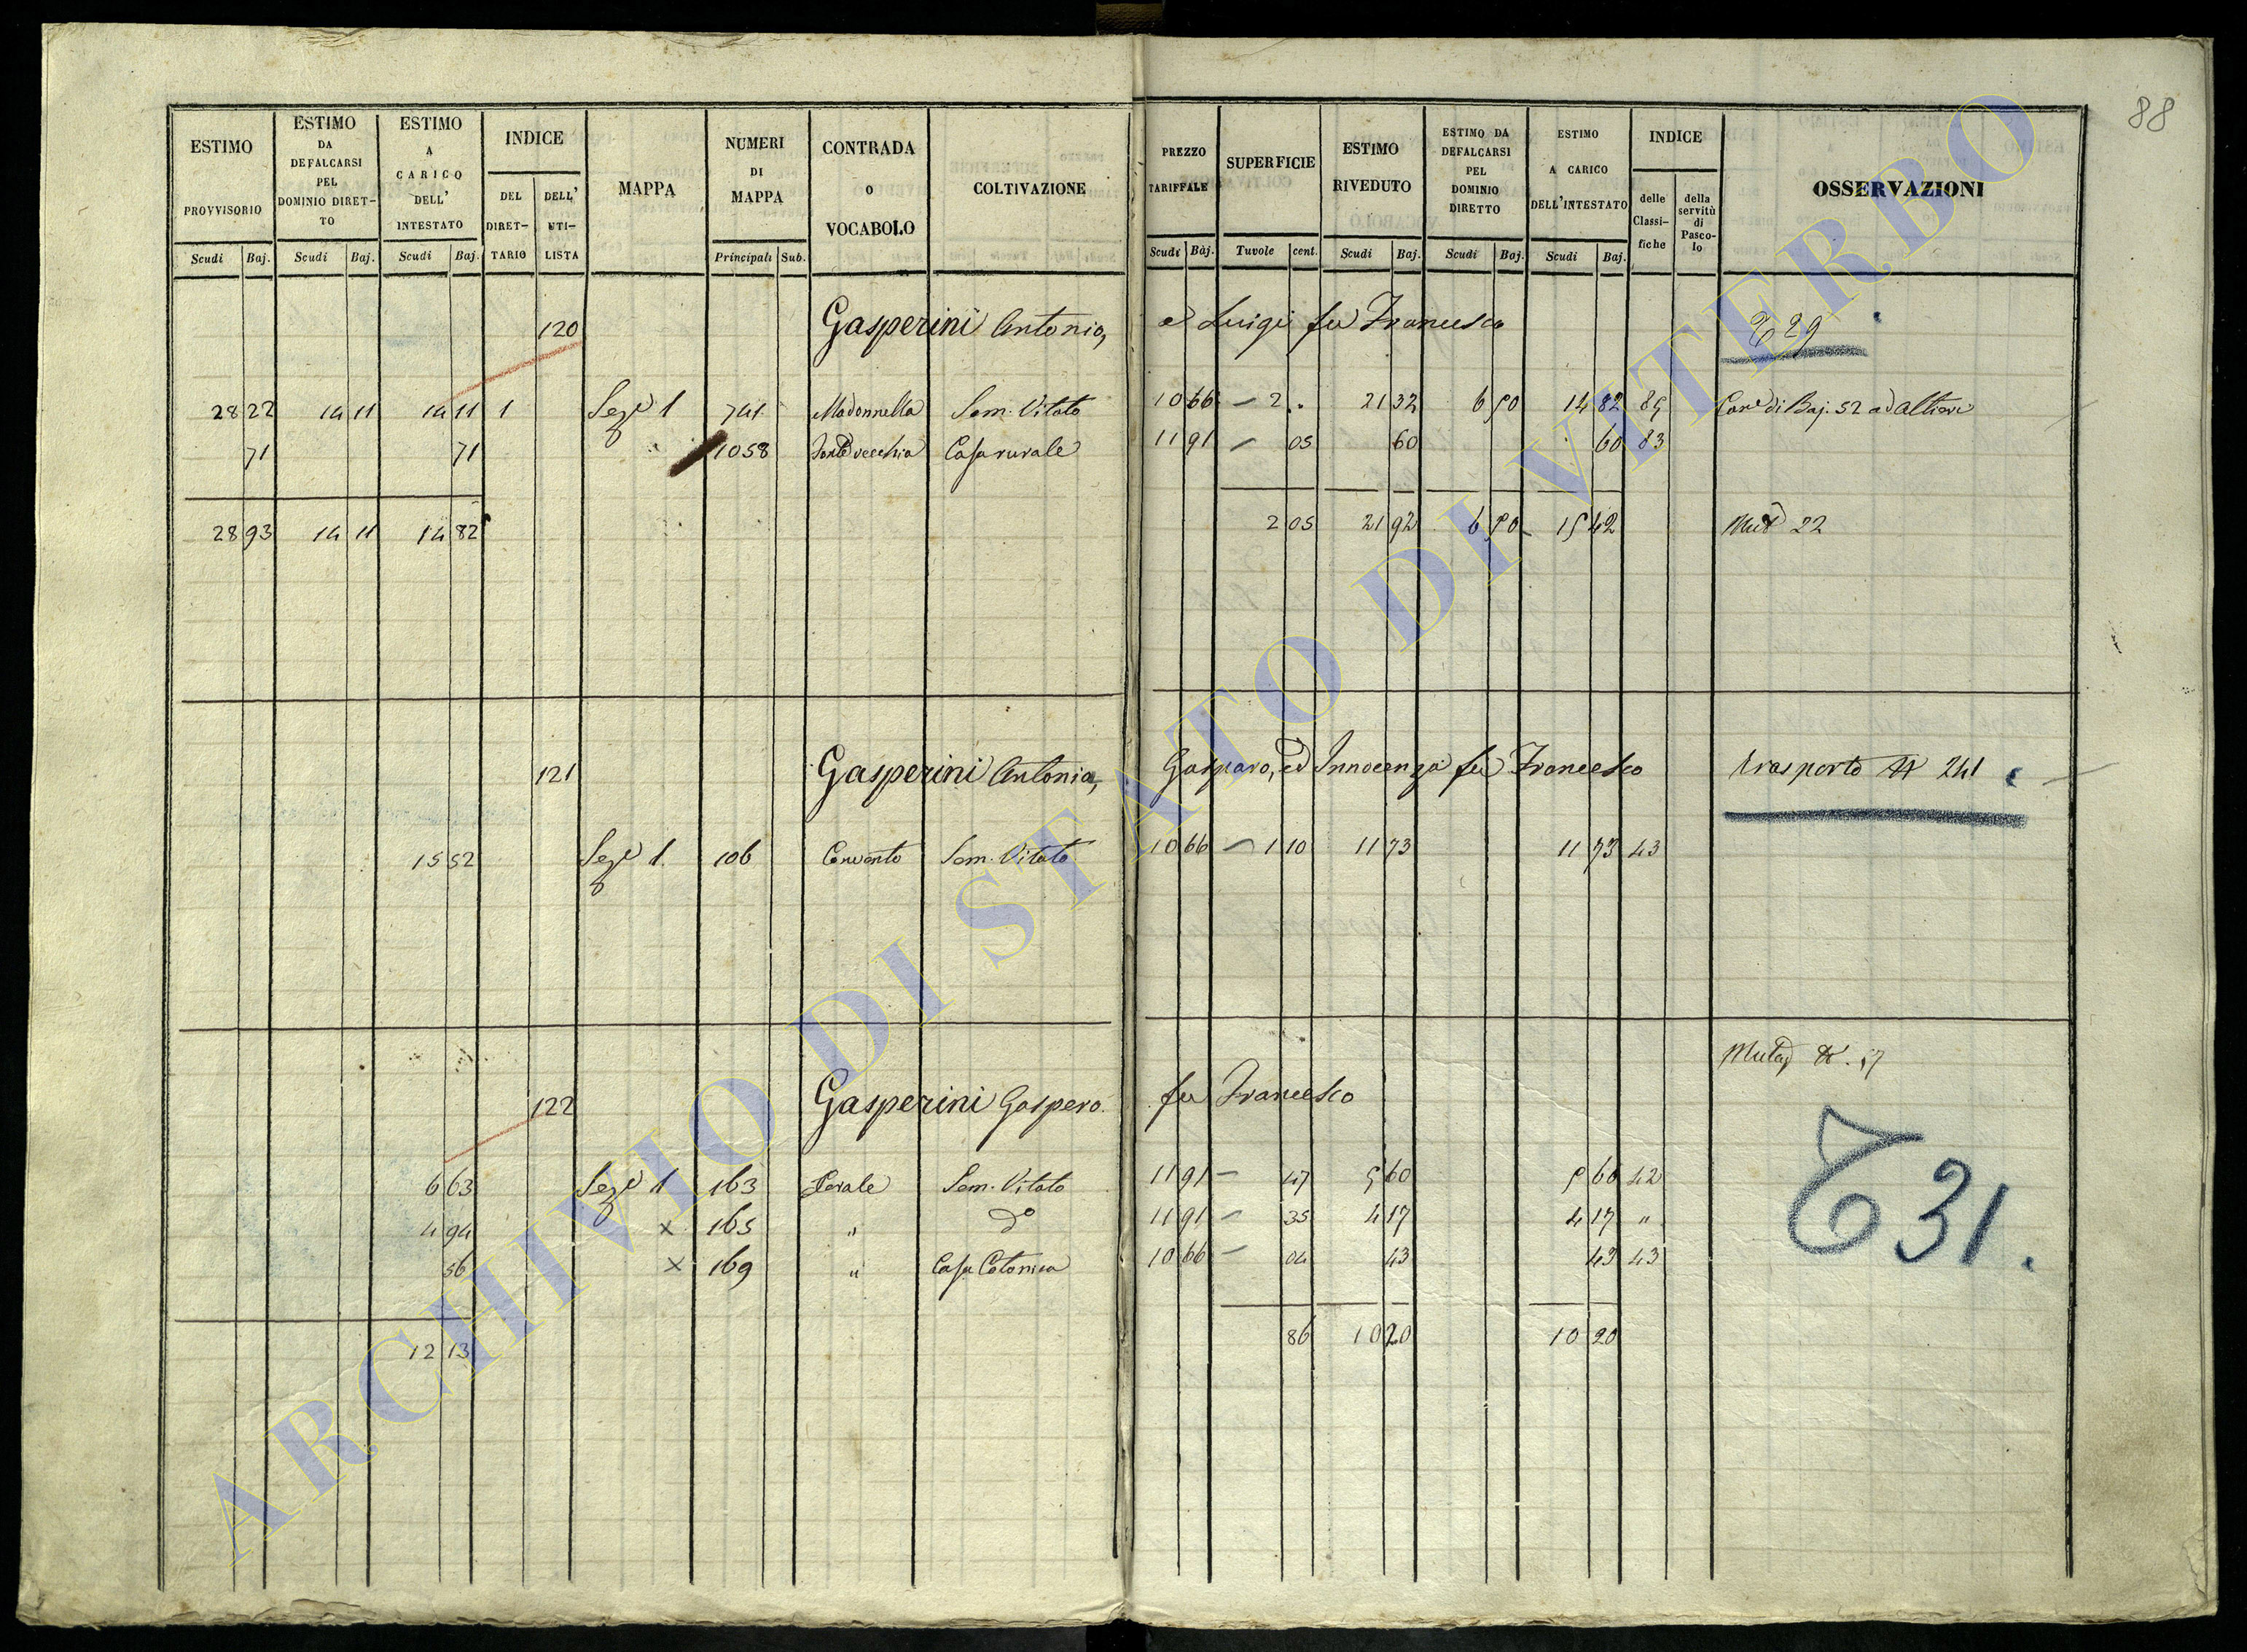 88
ESTIMO PROVVISORIO
ESTIMO DA DEFALCARSI PEL DOMINIO DIRET-TO
ESTIMO A CARICO DELL' INTESTATO
INDICE
DEL DIRET-TARIO
DELL' UTI-LISTA
MAPPA
NUMERI DI MAPPA
CONTRADA O VOCABOLO
COLTIVAZIONE
PREZZO TARIFFALE
SUPERFICIE
ESTIMO RIVEDUTO
ESTIMO DA DEFALCARSI PEL DOMINIO DIRETTO
ESTIMO A CARICO DELL'INTESTATO
INDICE
delle Classi-fiche
della servitù di Pasco-lo
OSSERVAZIONI
Scudi Baj. Scudi Baj. Scudi Baj. Principali Sub. Scudi Baj. Tavole cent. Scudi Baj. Scudi Baj. Scudi Baj.
120 Gasperini Antonio, e Luigi fu Francesco 29
28 22 14 11 14 11 1 Sez.e 1 741 Madonnella Sem. Vitato 10 66 2 .. 21 32 6 50 14 82 85 di Baj. 52 ad Altieri
71 71 " 1058 vecchia Casa rurale 11 91 05 60 60 83
28 93 14 11 14 82 2 05 21 92 6 50 15 42 22
121 Gasperini Antonia, Gasparo, ed Innocenza fu Francesco trasporto N 241
15 52 Sez.e 1. 106 Convento Sem. Vitato 10 66 1 10 11 73 11 73 43
122 Gasperini Gaspero fu Francesco
6 63 Sez.e 1 163 Sem. Vitato 11 91 47 5 60 5 60 42
4 94 x 165 " do 11 91 35 4 17 4 17 "
56 x 169 " Casa Colonica 10 66 04 43 43 43
12 13 86 10 20 10 20
31.
ARCHIVIO DI STATO DI VITERBO